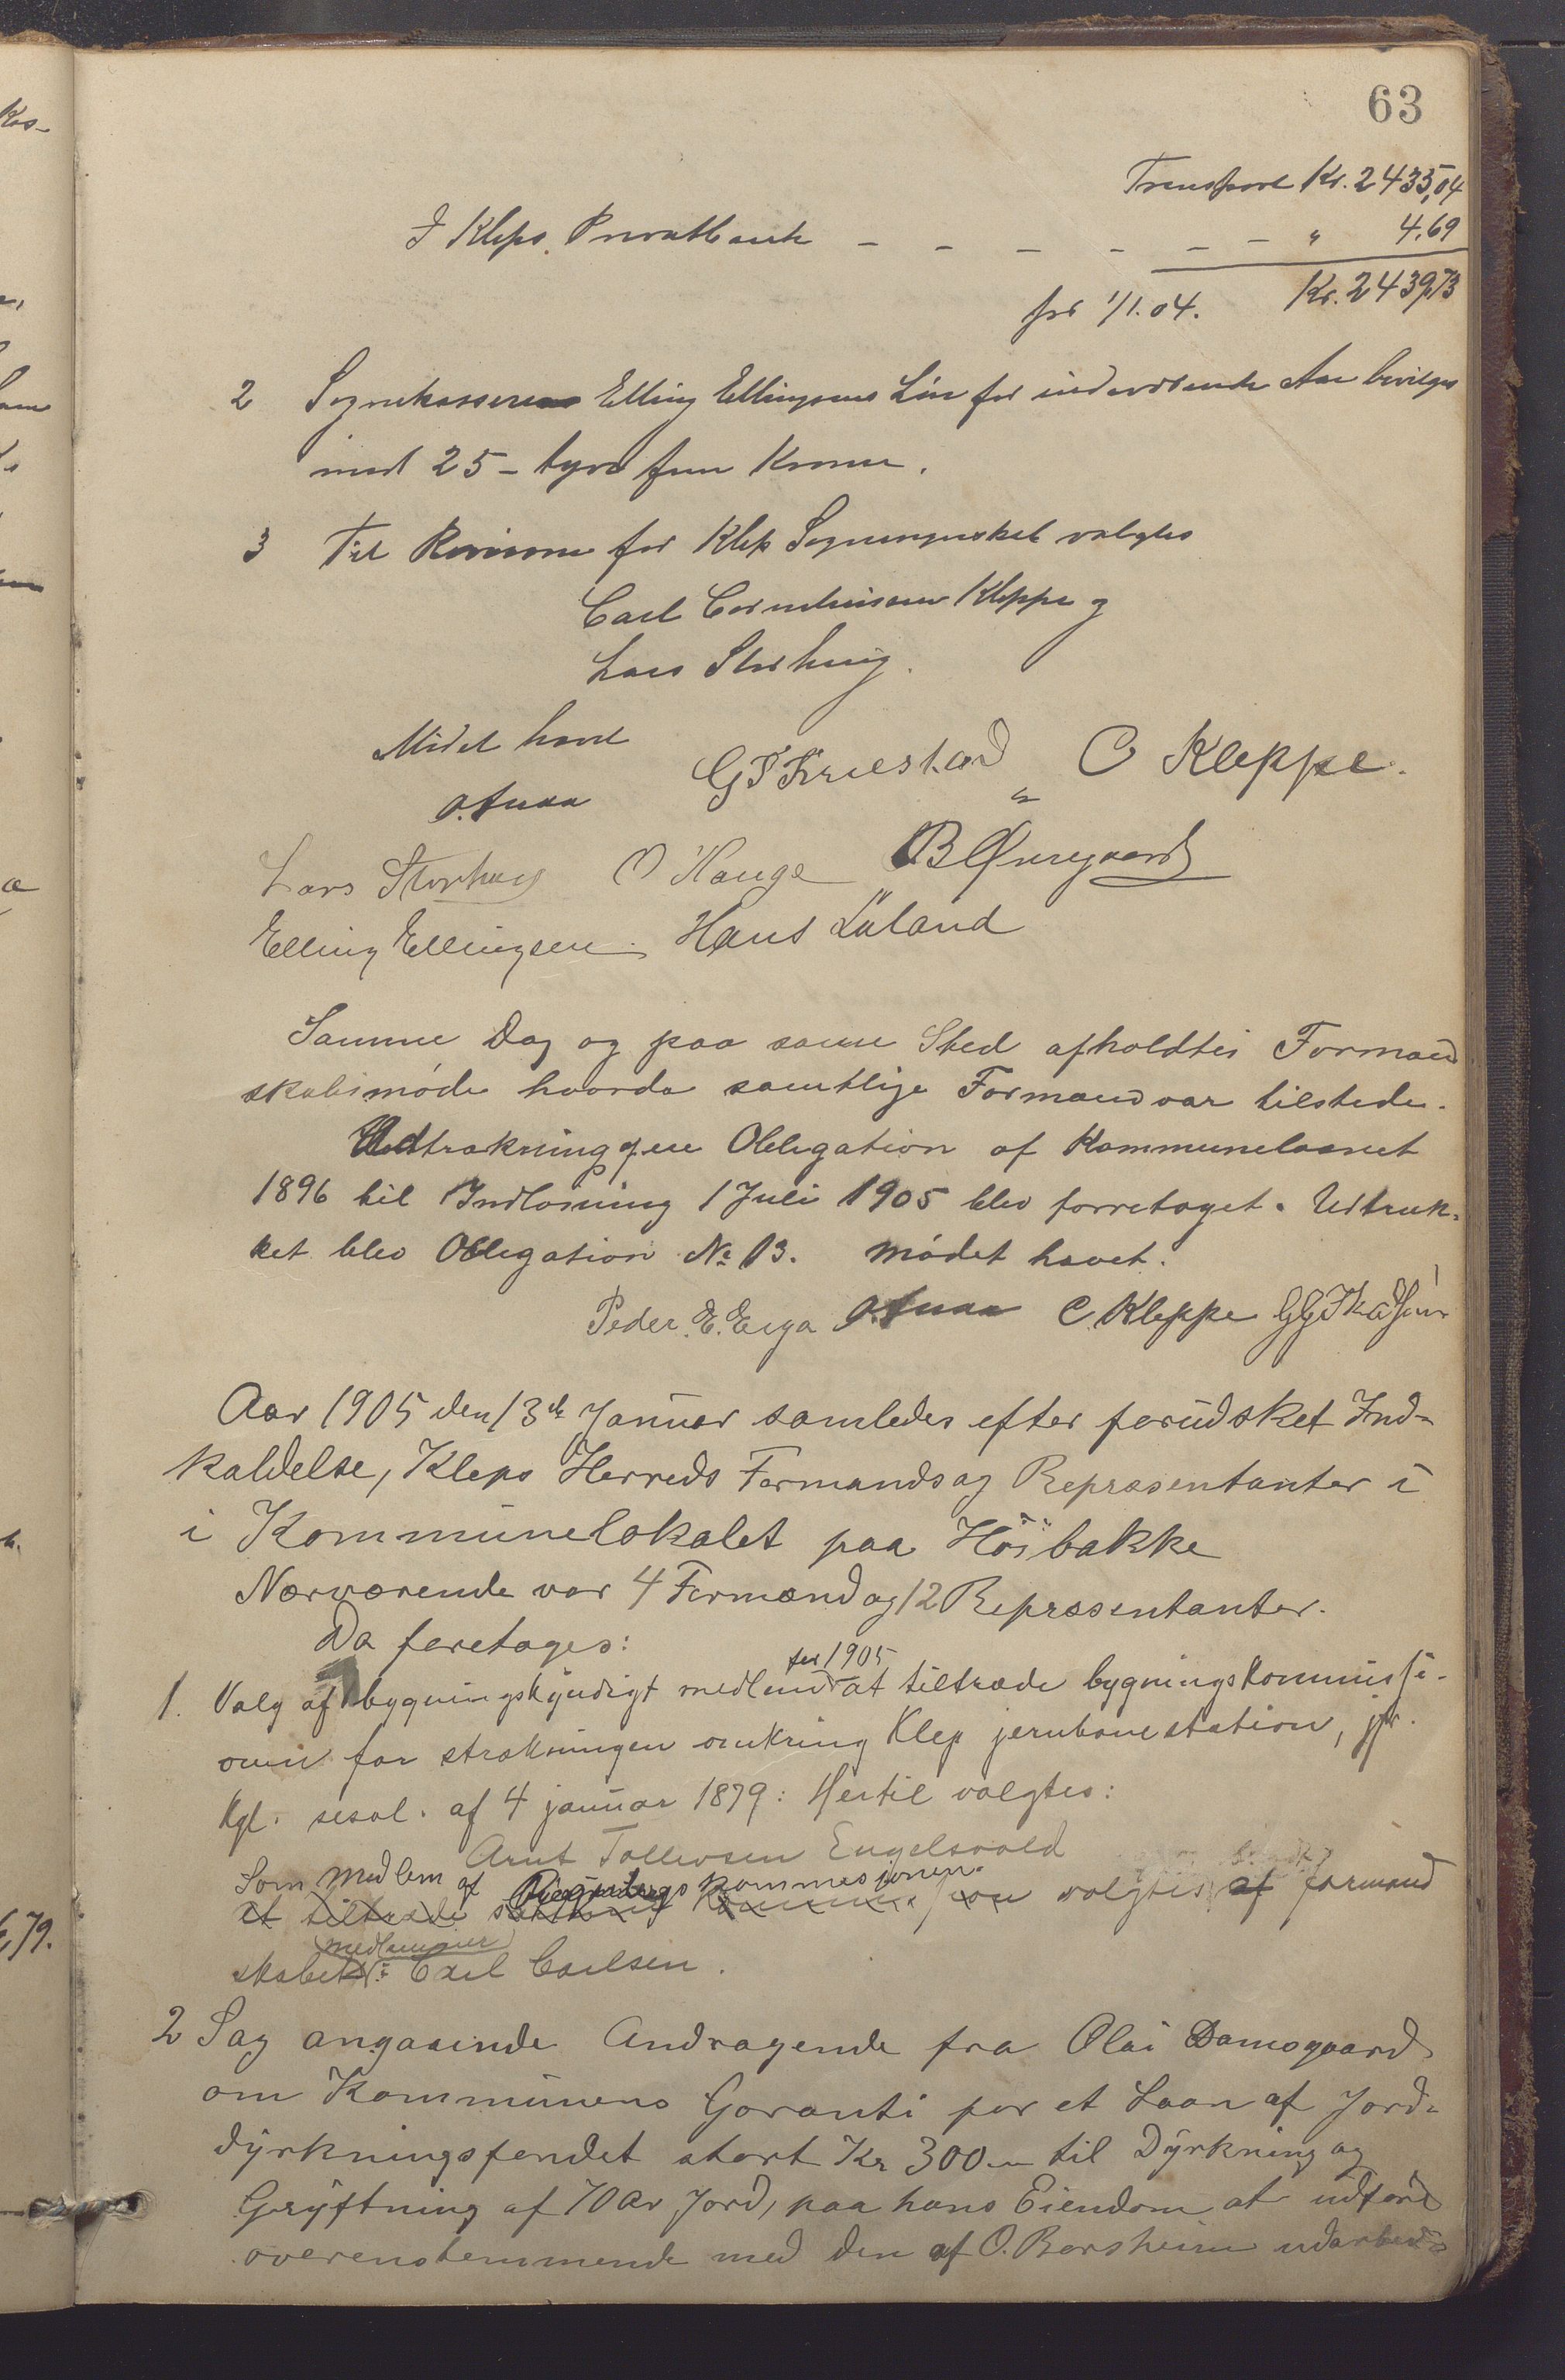 63
Transport Kr. 2435,04
I Kleps Privatbank — — — — — — " 4.69
for 1/1.04. Kr. 2439,73
2 Sognekasserer Elling Ellingsens Løn for indeværende Aar beviljes
med 25 - tyve fem Kroner.
3 Til Revisorer for Klep Sogneregnskab valgtes
Carl Corneliussen Kleppe og
Lars Storhaug.
Mødet hævet
O. Anda G T Friestad " C Kleppe.
Lars Storhaug O Hauge B Øxnegaard
Elling Ellingsen. Hans Laland
Samme Dag og paa samme Sted afholdtes Formand
skabsmøde hvorda samtlige Formænd var tilstede.
Udtrækning af en Obligation af Kommunelaanet
1896 til Indløsning 1 Juli 1905 blev forretaget. Udtruk-
ket blev Obligation No 13. Mødet hævet.
Peder. E. Erga O. Anda C Kleppe
Aar 1905 den 13de Januar samledes efter forudsket Ind-
kaldelse, Kleps Herreds Formænds og Repræsentanter i
i Kommunelokalet paa Høibakke
Nærværende var 4 Formænd og 12 Repræsentanter.
Da foretages:
for 1905
1. Valg af 1 bygningskyndigt medlem at tiltræde bygningskommissi-
onen for strækningen omkring Klep jernbanestation, jfr.
Kgl. resol. af 4 januar 1879: Hertil valgtes:
Arnt Tollevsen Engelsvold
Som Medlem af Reguleringskommisjonen
at tiltræde valgtes af formand
medlemmer
skabets: Carl Carlsen.
2 Sag angaaende Andragende fra Olai Damsgaard
om Kommunens Garanti for et Laan af Jord-
dyrkningsfondet stort Kr 300 — til Dyrkning og
Grøftning af 70 Ar Jord, paa hans Eiendom at udføre
overenstemmende med den af O. Borsheim udarbeid-